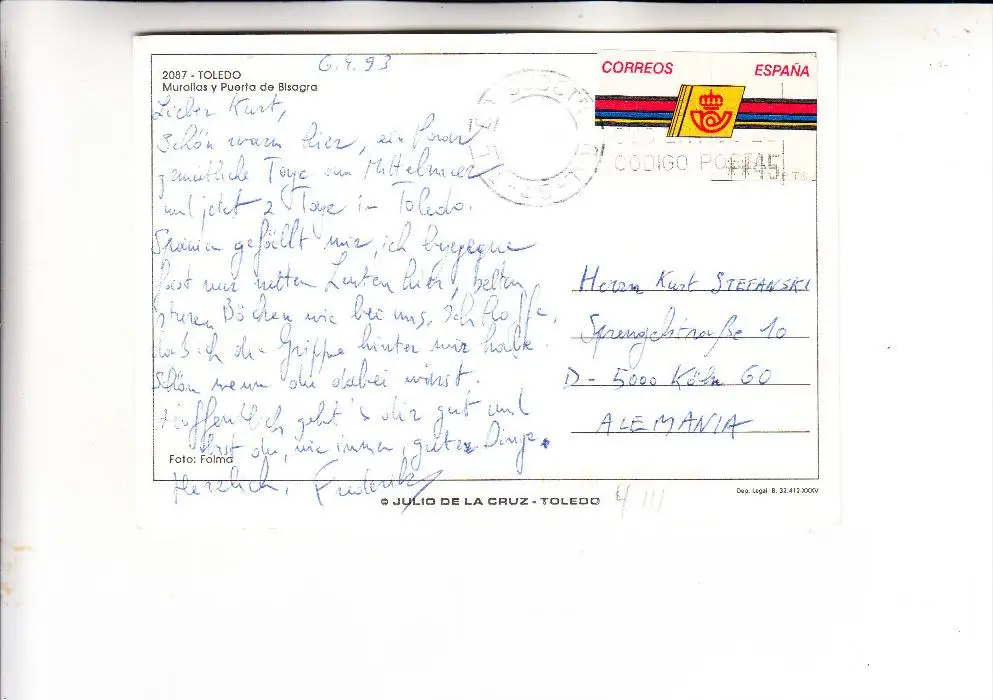 6.4.93
2087 - TOLEDO
Murallas y Puerta de Bisagra
CORREOS ESPAÑA
CODIGO POSTAL
45 PTS
Lieber Kurt,
Schön warm hier, ein Paar
gemütliche Tage am Mittelmeer
und jetzt 2 Tage in Toledo.
Spanien gefällt mir, ich begegne
fast nur netten Leuten hier, selten
sturen Böcken wie bei uns. Ich hoffe,
daß ich die Grippe hinter mir habe.
Schön wenn du dabei wärst.
Hoffentlich geht's dir gut und
bist du, wie immer, guter Dinge.
Herzlich, Frederik
Herrn Kurt STEFANSKI
Sprengelstraße 10
D - 5000 Köln 60
ALEMANIA
Foto: Folma
© JULIO DE LA CRUZ - TOLEDO
Dep. Legal B. 32.412-XXXV